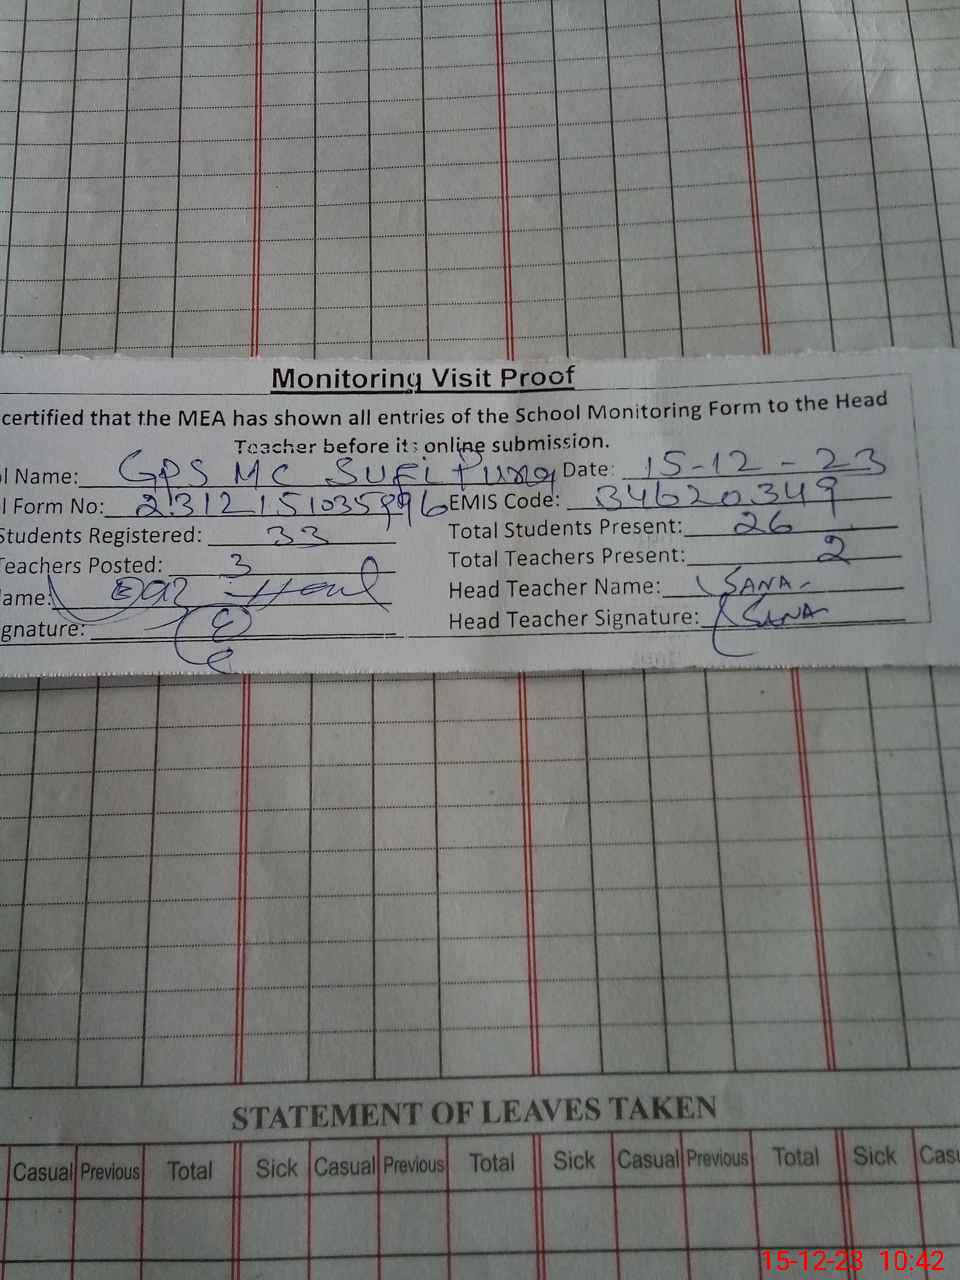 Monitoring Visit Proof
certified that the MEA has shown all entries of the School Monitoring Form to the Head
Teacher before its online submission.
l Name: GPS MC SUFI Pura Date: 15-12-23
l Form No: EMIS Code: 34620349
Students Registered: 33 Total Students Present: 26
Teachers Posted: 3 Total Teachers Present: 2
ame: Head Teacher Name: SANA
gnature: Head Teacher Signature: SANA
STATEMENT OF LEAVES TAKEN
Casual Previous Total Sick Casual Previous Total Sick Casual Previous Total Sick Casu
15-12-23 10:42